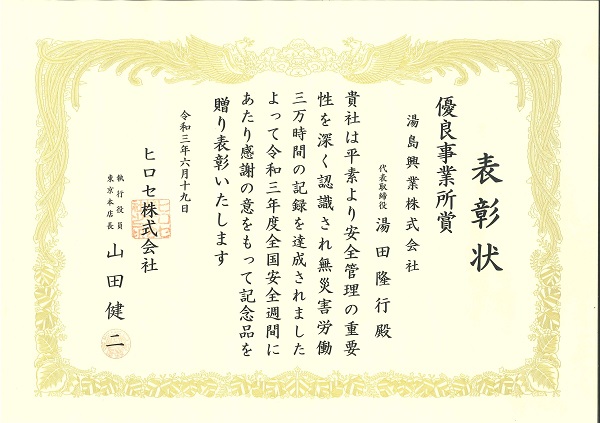 表彰状
優良事業所賞
湯島興業株式会社
代表取締役 湯田隆行殿
貴社は平素より安全管理の重要
性を深く認識され無災害労働
三万時間の記録を達成されました
よって令和三年度全国安全週間に
あたり感謝の意をもって記念品を
贈り表彰いたします
令和三年六月十九日
ヒロセ株式会社
執行役員
東京本店長 山田健二